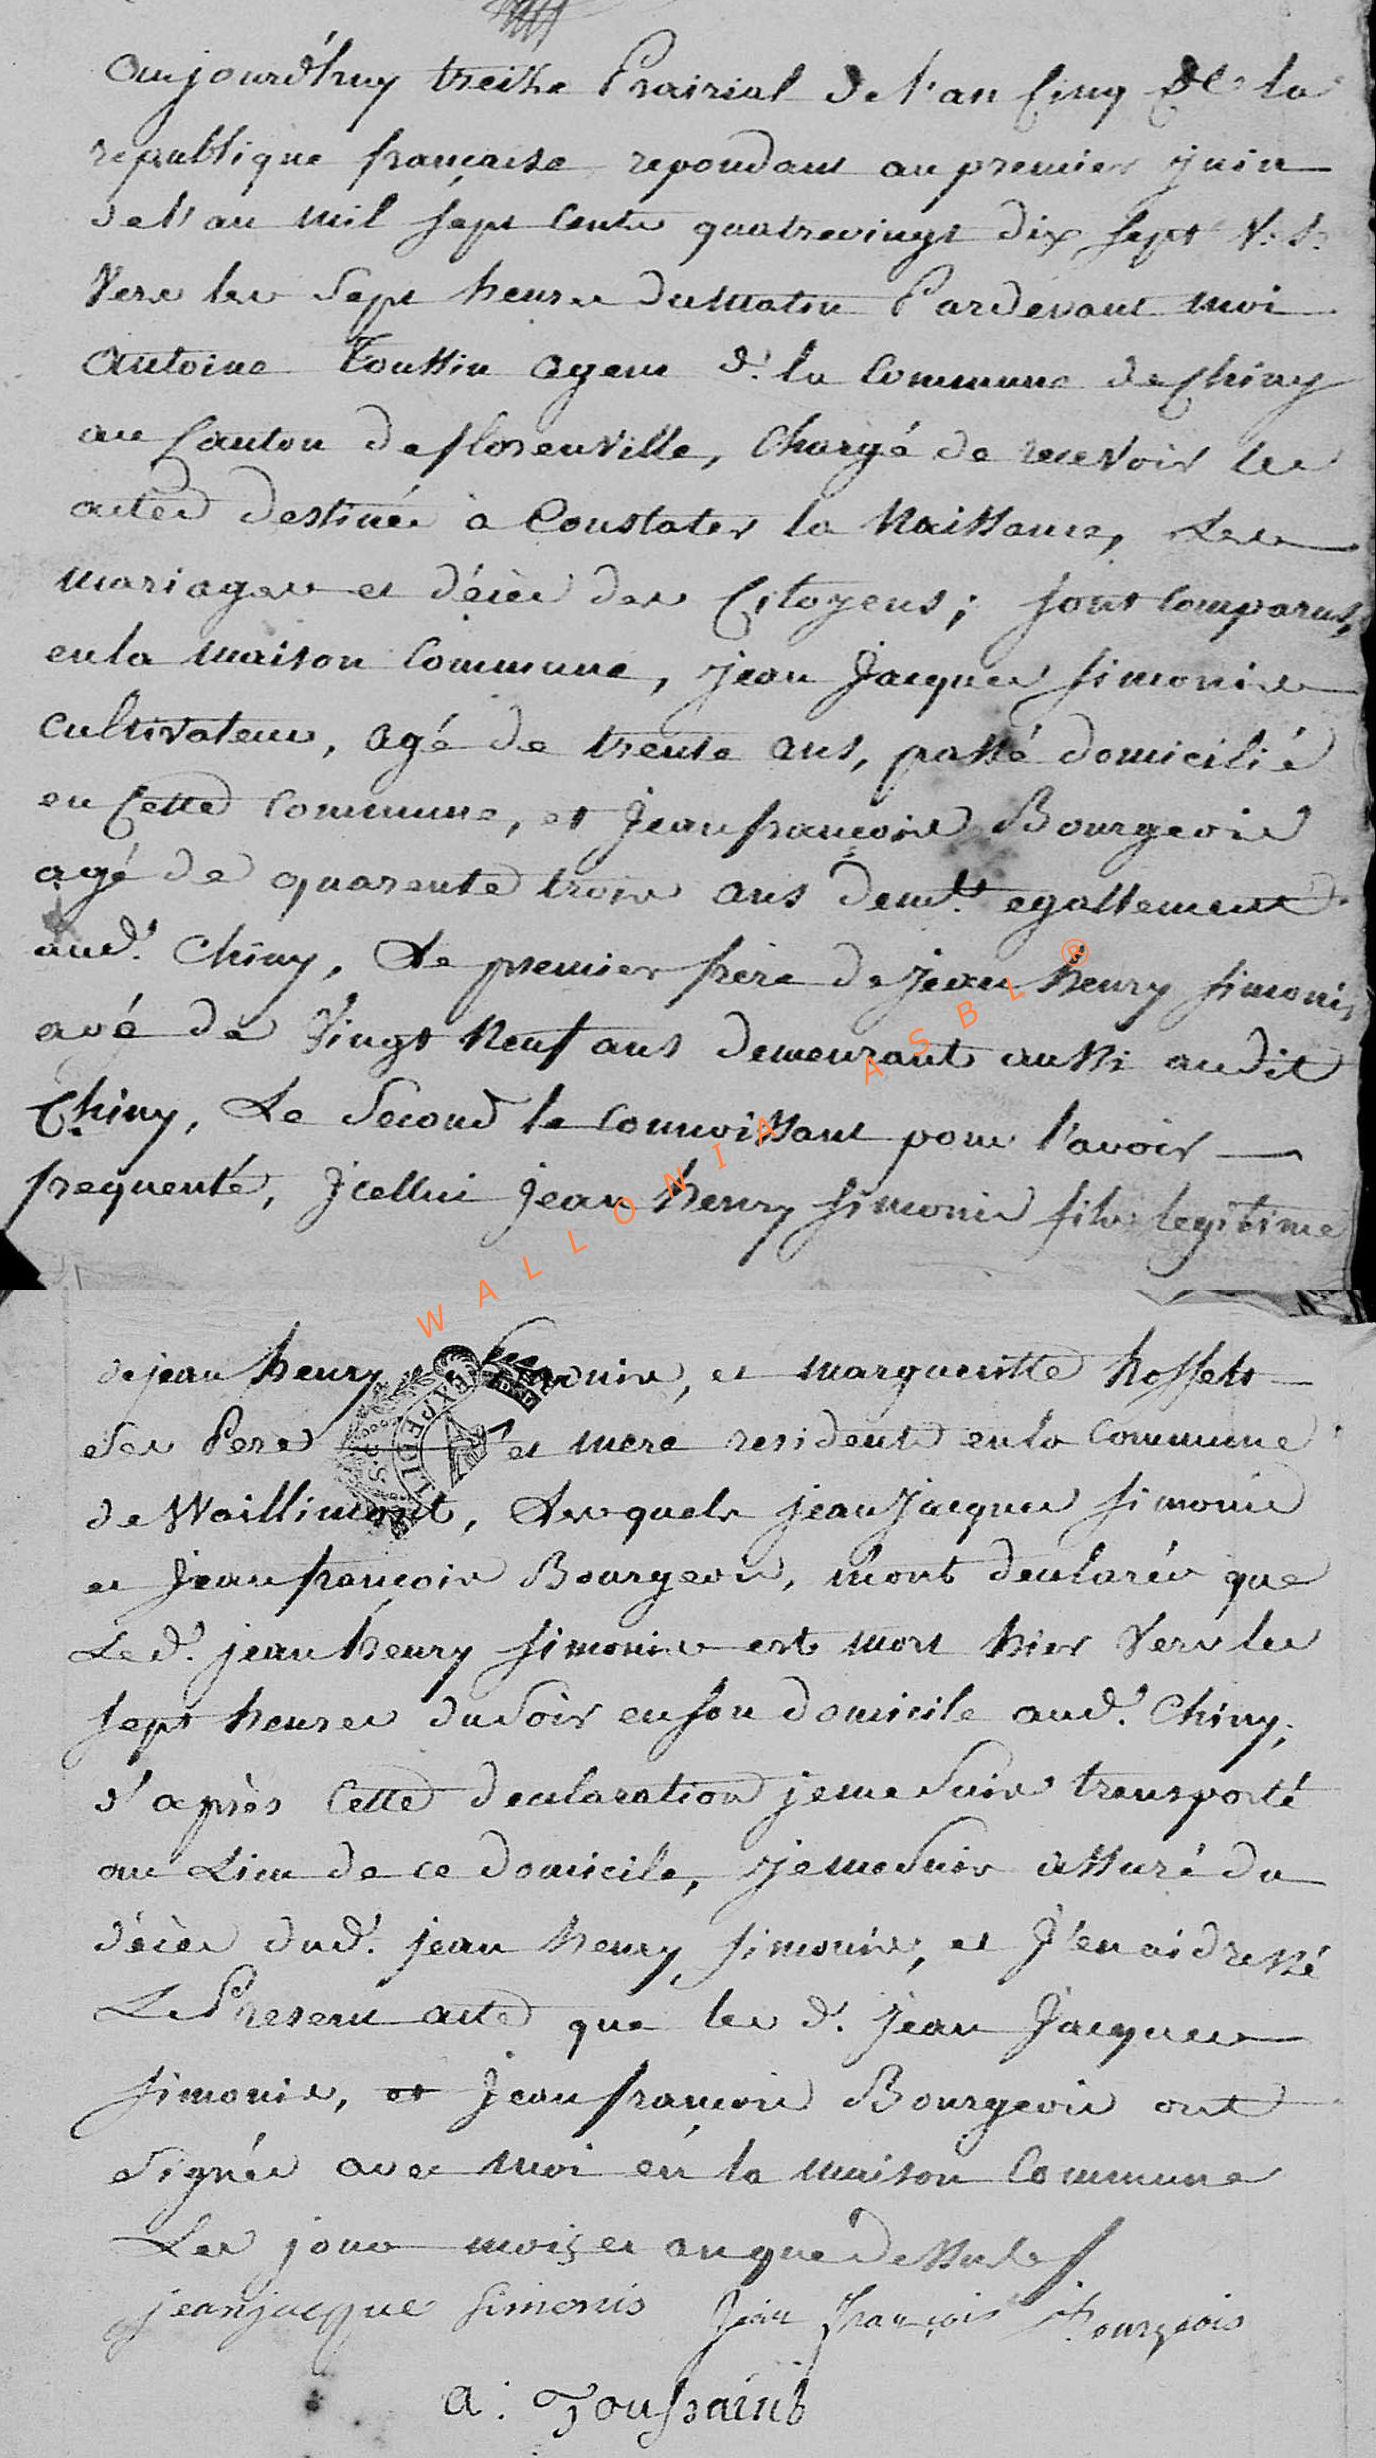 aujourd'huy treitze Prairial de l'an Cinq de la
republique française repondant au premier juin
de l'an mil sept Cents quatrevingt dix sept V: S:
Vers les Sept heures du matin Pardevant moi
antoine Toussin agent d. la Commune de Chiny
au Canton de florenville, Chargé de recevoir les
actes destinés à Constater la Naissance, Les
mariages et décès des Citoyens; sont Comparus,
en la maison Commune, jean Jacques simonis
cultivateur, agé de trente ans, passé domicilié
en Cette Commune, et Jean françois Bourgeois
agé de quarente trois ans demt. egallement
aud. Chiny, Le premier frère de jean henry simonis
agé de Vingt Neuf ans demeurant aussi audit
Chiny, Le Second le connoissant pour l'avoir
frequenté, Jcellui jean henry simonis fils legitime
de jean henry Simonis, et margueritte hossets
Ses Pere et mere residents en la Commune
de Waillimont, Lesquels jean Jacques simonis
et Jean françois Bourgeois, m'ont declarés que
Le d. jean henry simonis est mort hier Vers les
sept heures du Soir en son domicile aud. Chiny,
d'après Cette declaration je me Suis transporté
au Lieu de ce domicile, je me Suis assuré du
décès dud. jean henry simonis, et J'en ai dressé
Le Present acte que les d. jean Jacques
simonis, et Jean françois Bourgeois ont
Signés avec moi en la maison Commune
Les jour mois et an que dessus
jeanjacque Simonis Jean françois Bourgeois
a. Toussaint
WALLONIA ASBL ®